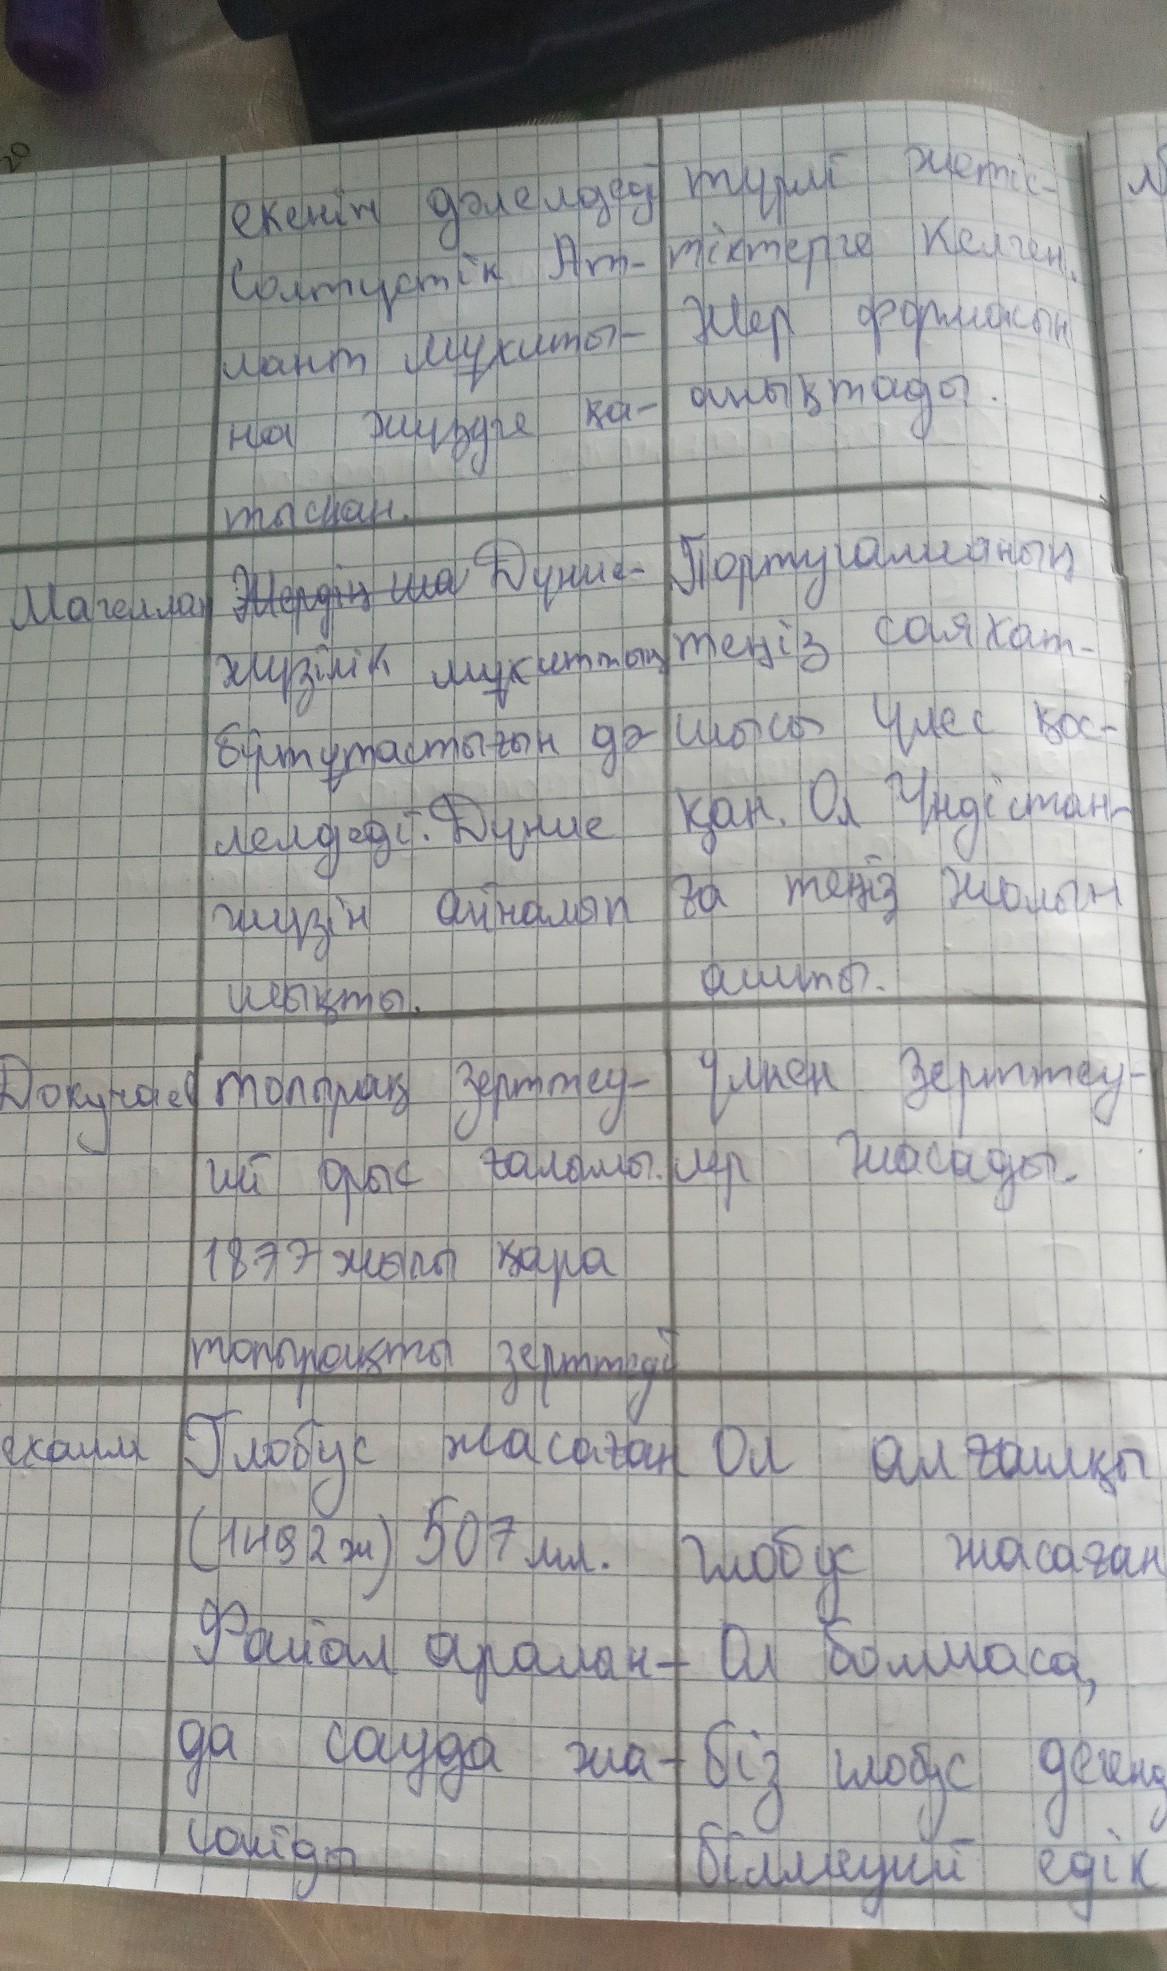 екенін дәлелдеді
Солтүстік Ат-
лант мұхиты-
на жүзуге қа-
тысқан.
түрлі жетіс-
тіктерге келген.
Жер формасын
анықтады.
Магеллан
Жердің ша Дүние-
жүзілік мұхиттың
бүтұтастығын дә-
лелдеді. Дүние
жүзін айналып
шықты.
Португалияның
теңіз саяхат-
шысы үлес қос-
қан. Ол Үндістан-
ға теңіз жолын
ашты.
Докучаев
топырақ зерттеу-
ші орыс ғалымы.
1877 жылы қара
топырақты зерттеді
үлкен зерттеу-
лер жасады.
ехаим
Глобус жасаған
(1492 ж) 507 мм.
Файал аралан-
да сауда жа-
сайды
Ол алғашқы
глобус жасаған
Ол болмаса,
біз глобус дегенд
білмеуші едік